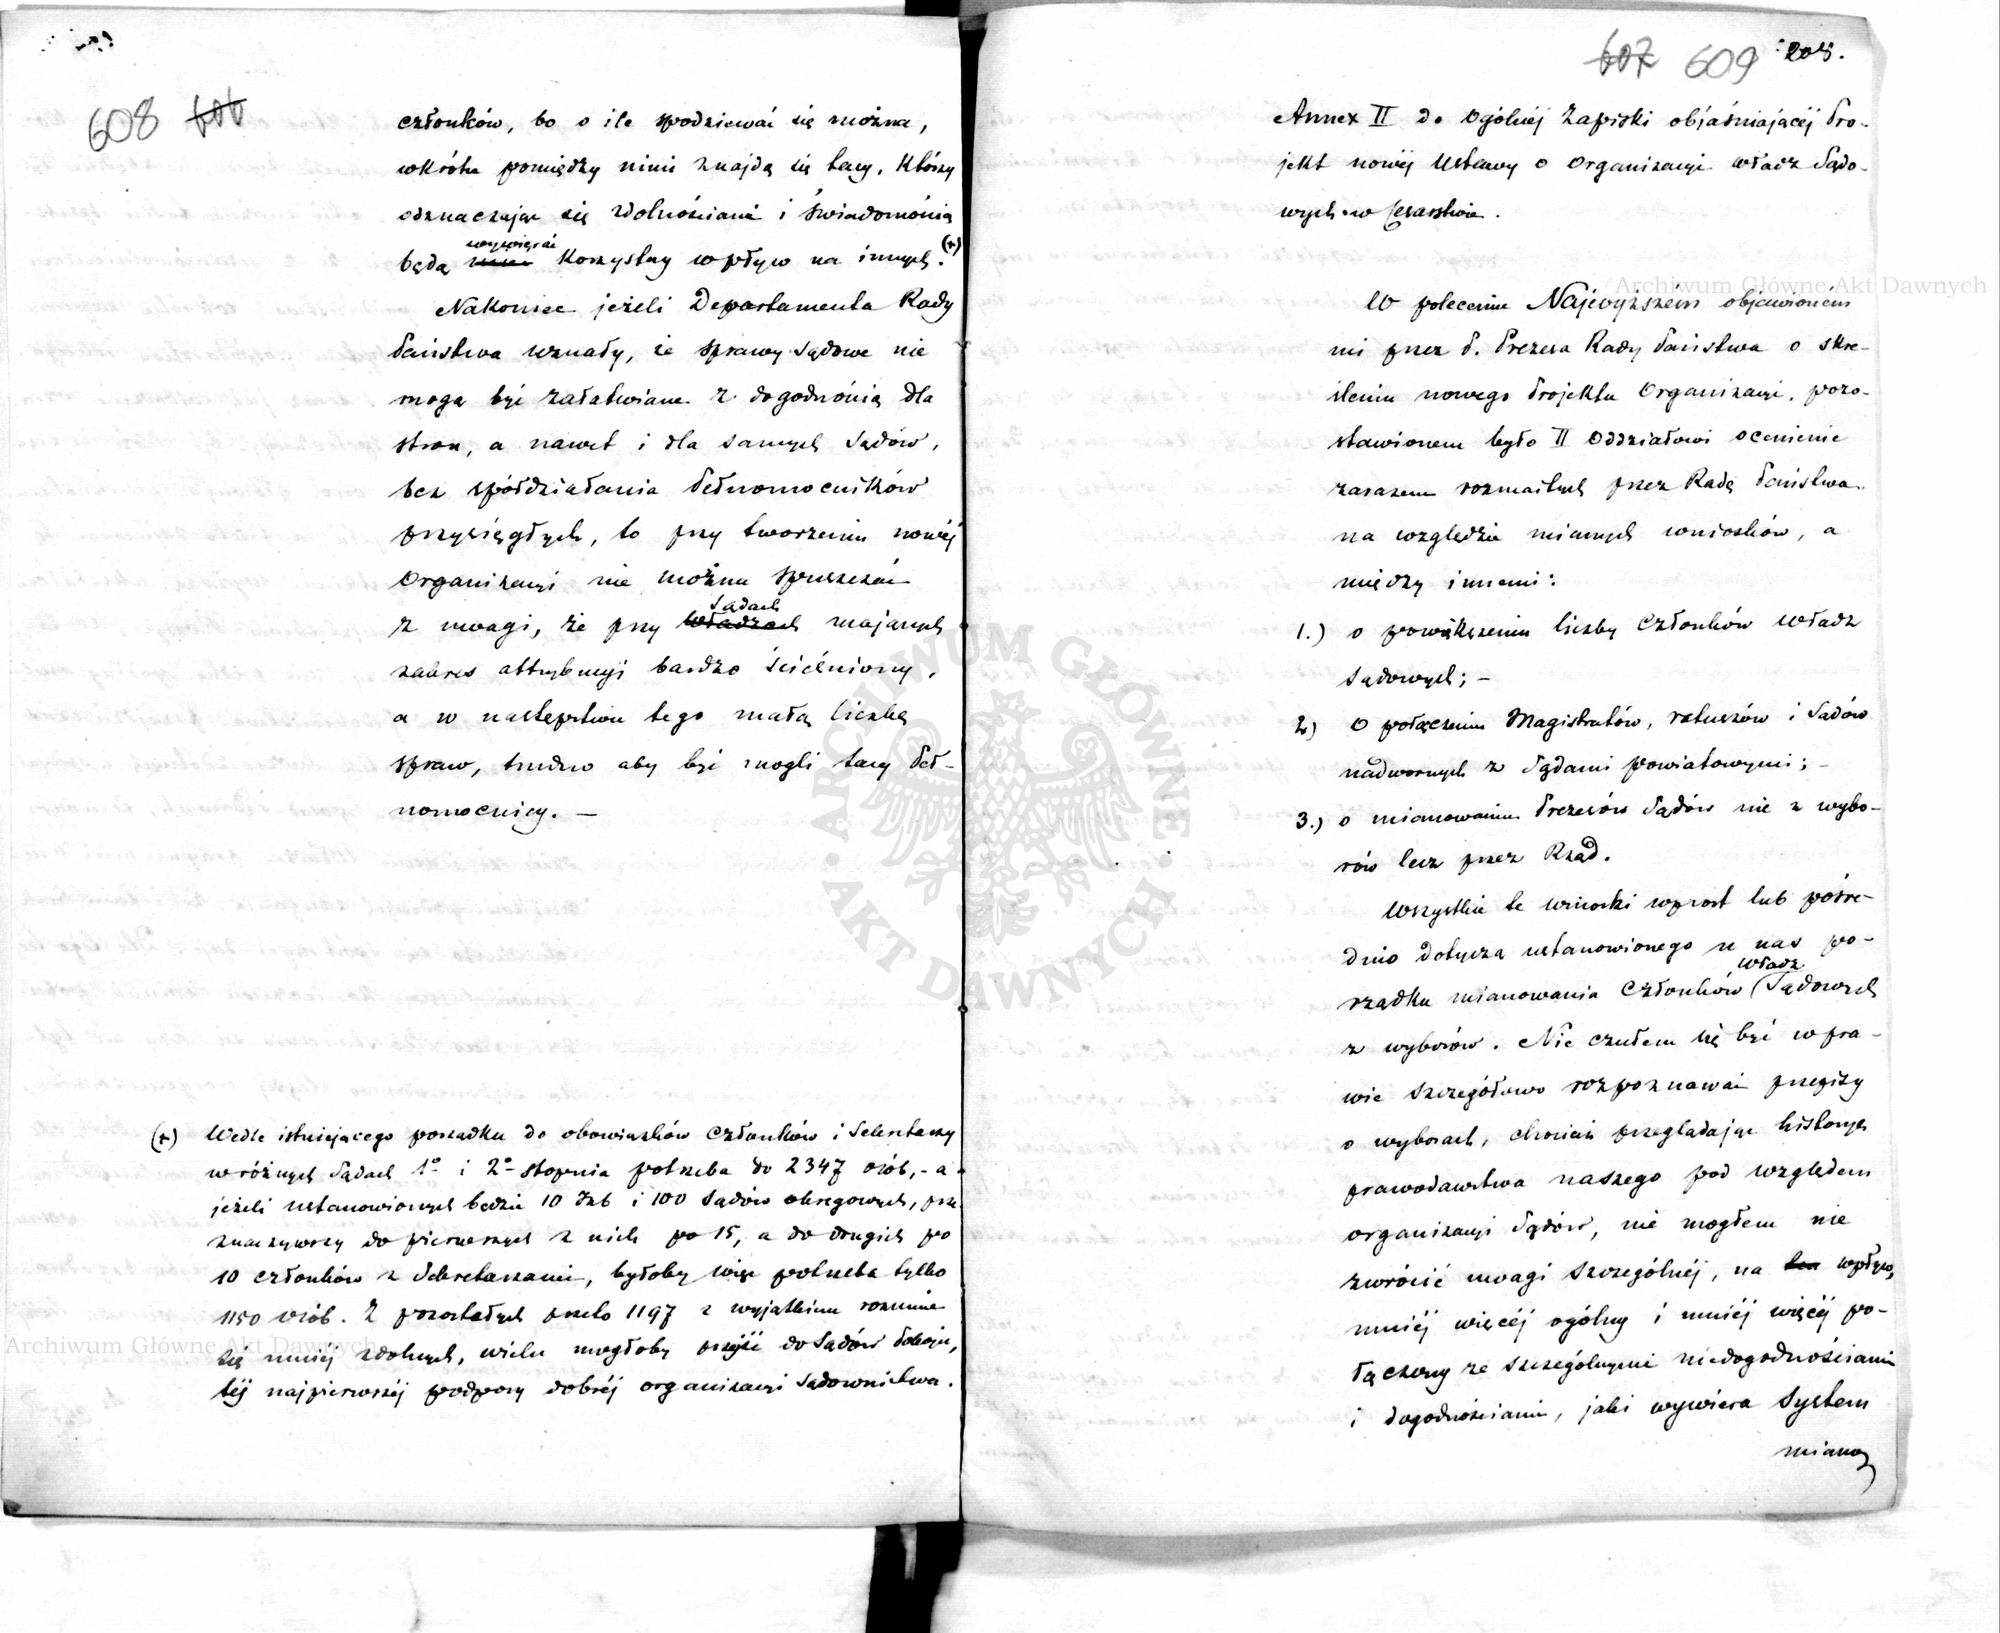 608 606
członków, bo o ile spodziewać się można,
wkrótce pomiędzy nimi znajdą się tacy, którzy
odznaczając się zdolnościami i świadomością
wywierać
będą korzystny wpływ na innych. (+)
Nakoniec jeżeli Departamenta Rady
Państwa uznały, że sprawy sądowe nie
mogą być załatwiane z dogodnością dla
stron, a nawet i dla samych Sądów,
bez spółdziałania Pełnomocników
przysięgłych, to przy tworzeniu nowéj
Organizacyi nie można spuszczać
Sądach
z uwagi, że przy władzach mających
zakres attrybucyi bardzo ścieśniony,
a w następstwie tego małą liczbę
spraw, trudno aby być mogli tacy Peł-
nomocnicy. —
(+) Wedle istniejącego porządku do obowiązków Członków i Sekretarzy
w różnych Sądach 1º i 2º stopnia potrzeba do 2347 osób, - a
jeżeli ustanowionych będzie 10 Izb i 100 Sądów okręgowych, prze
znaczywszy do pierwszych z nich po 15, a do drugich po
10 członków z Sekretarzami, byłoby więc potrzeba tylko
1150 osób. Z pozostałych przeto 1197 z wyjątkiem rozumie
się mniej zdolnych, wielu mogłoby przejść do Sądów Pokoju,
téj najpierwszéj podpory dobréj organizacyi Sądownictwa.
607 609 205.
Annex II do Ogólnéj Zapiski objaśniającéj Pro-
jekt nowéj Ustawy o Organizacyi władz Sądo-
wych w Cesarstwie.
W poleceniu Najwyższem objawionem
mi przez P. Prezesa Rady Państwa o skre-
śleniu nowego Projektu Organizacyi, pozo-
stawionem było II Oddziałowi ocenienie
zarazem rozmaitych przez Radę Państwa
na względzie mianych wniosków, a
między innemi:
1.) o powiększeniu liczby Członków władz
Sądowych; —
2) O połączeniu Magistratów, ratuszów i Sądów
nadwornych z Sądami powiatowymi; —
3.) o mianowaniu Prezesów Sądów nie z wybo-
rów lecz przez Rząd.
Wszystkie te wnioski wprost lub pośre-
dnio dotyczą ustanowionego u nas po-
władz
rządku mianowania Członków Sądowych
z wyborów. Nie czułem się być w pra-
wie szczegółowo rozpoznawać przepisy
o wyborach, chociaż przeglądając historyę
prawodawstwa naszego pod względem
organizacyi Sądów, nie mogłem nie
zwrócić uwagi szczególnéj, na ten wpływ,
mniéj więcéj ogólny i mniéj więcéj po-
łączony ze szczególnymi niedogodnościami
i dogodnościami, jaki wywiéra System
miano
Archiwum Główne Akt Dawnych
Archiwum Główne Akt Dawnych
ARCHIWUM GŁÓWNE
AKT DAWNYCH